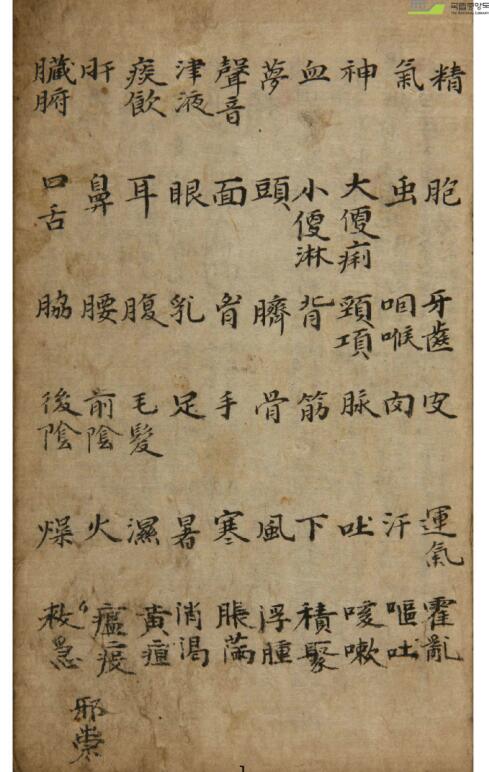 국립중앙도
THE NATIONAL LIBRARY
精 氣 神 血 夢 聲音 津液 痰飮 肝 臟腑
胞 虫 大便痢 小便淋 頭 面 眼 耳 鼻 口舌
牙齒 咽喉 頸項 背 臍 胷 乳 腹 腰 脇
皮 肉 脉 筋 骨 手 足 毛髮 前陰 後陰
運氣 汗 吐 下 風 寒 暑 濕 火 燥
霍亂 嘔吐 咳嗽 積聚 浮腫 脹滿 消渴 黃疸 瘟疫 救急
邪祟
1